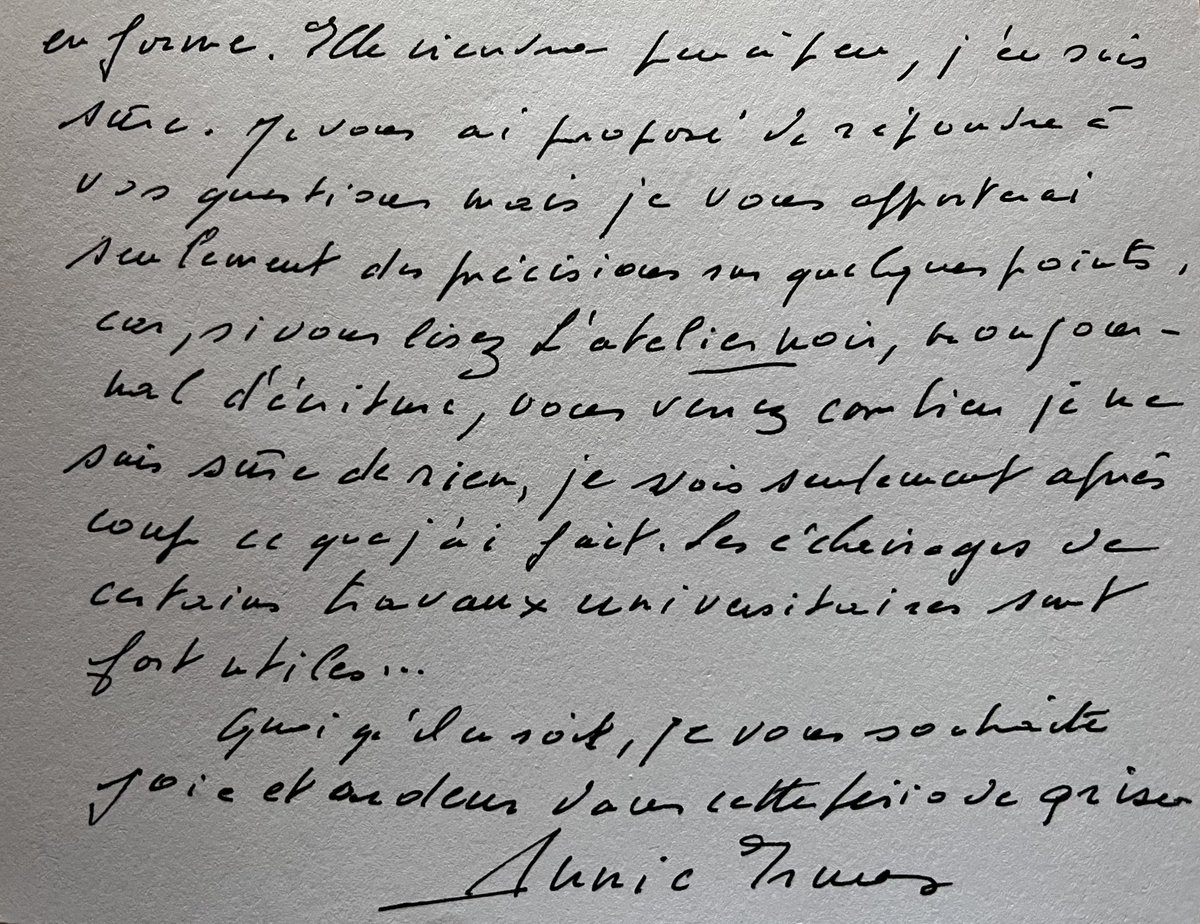 en forme. Elle viendra peu à peu, j'en suis
sûre. Je vous ai proposé de répondre à
vos questions mais je vous apporterai
seulement des précisions sur quelques points,
car, si vous lisez L'atelier noir, mon jour-
nal d'écriture, vous verrez combien je ne
suis sûre de rien, je vois seulement après
coup ce que j'ai fait. Les éclairages de
certains travaux universitaires sont
fort utiles...
Quoi qu'il en soit, je vous souhaite
joie et ardeur dans cette période grise
Annie Ernaux